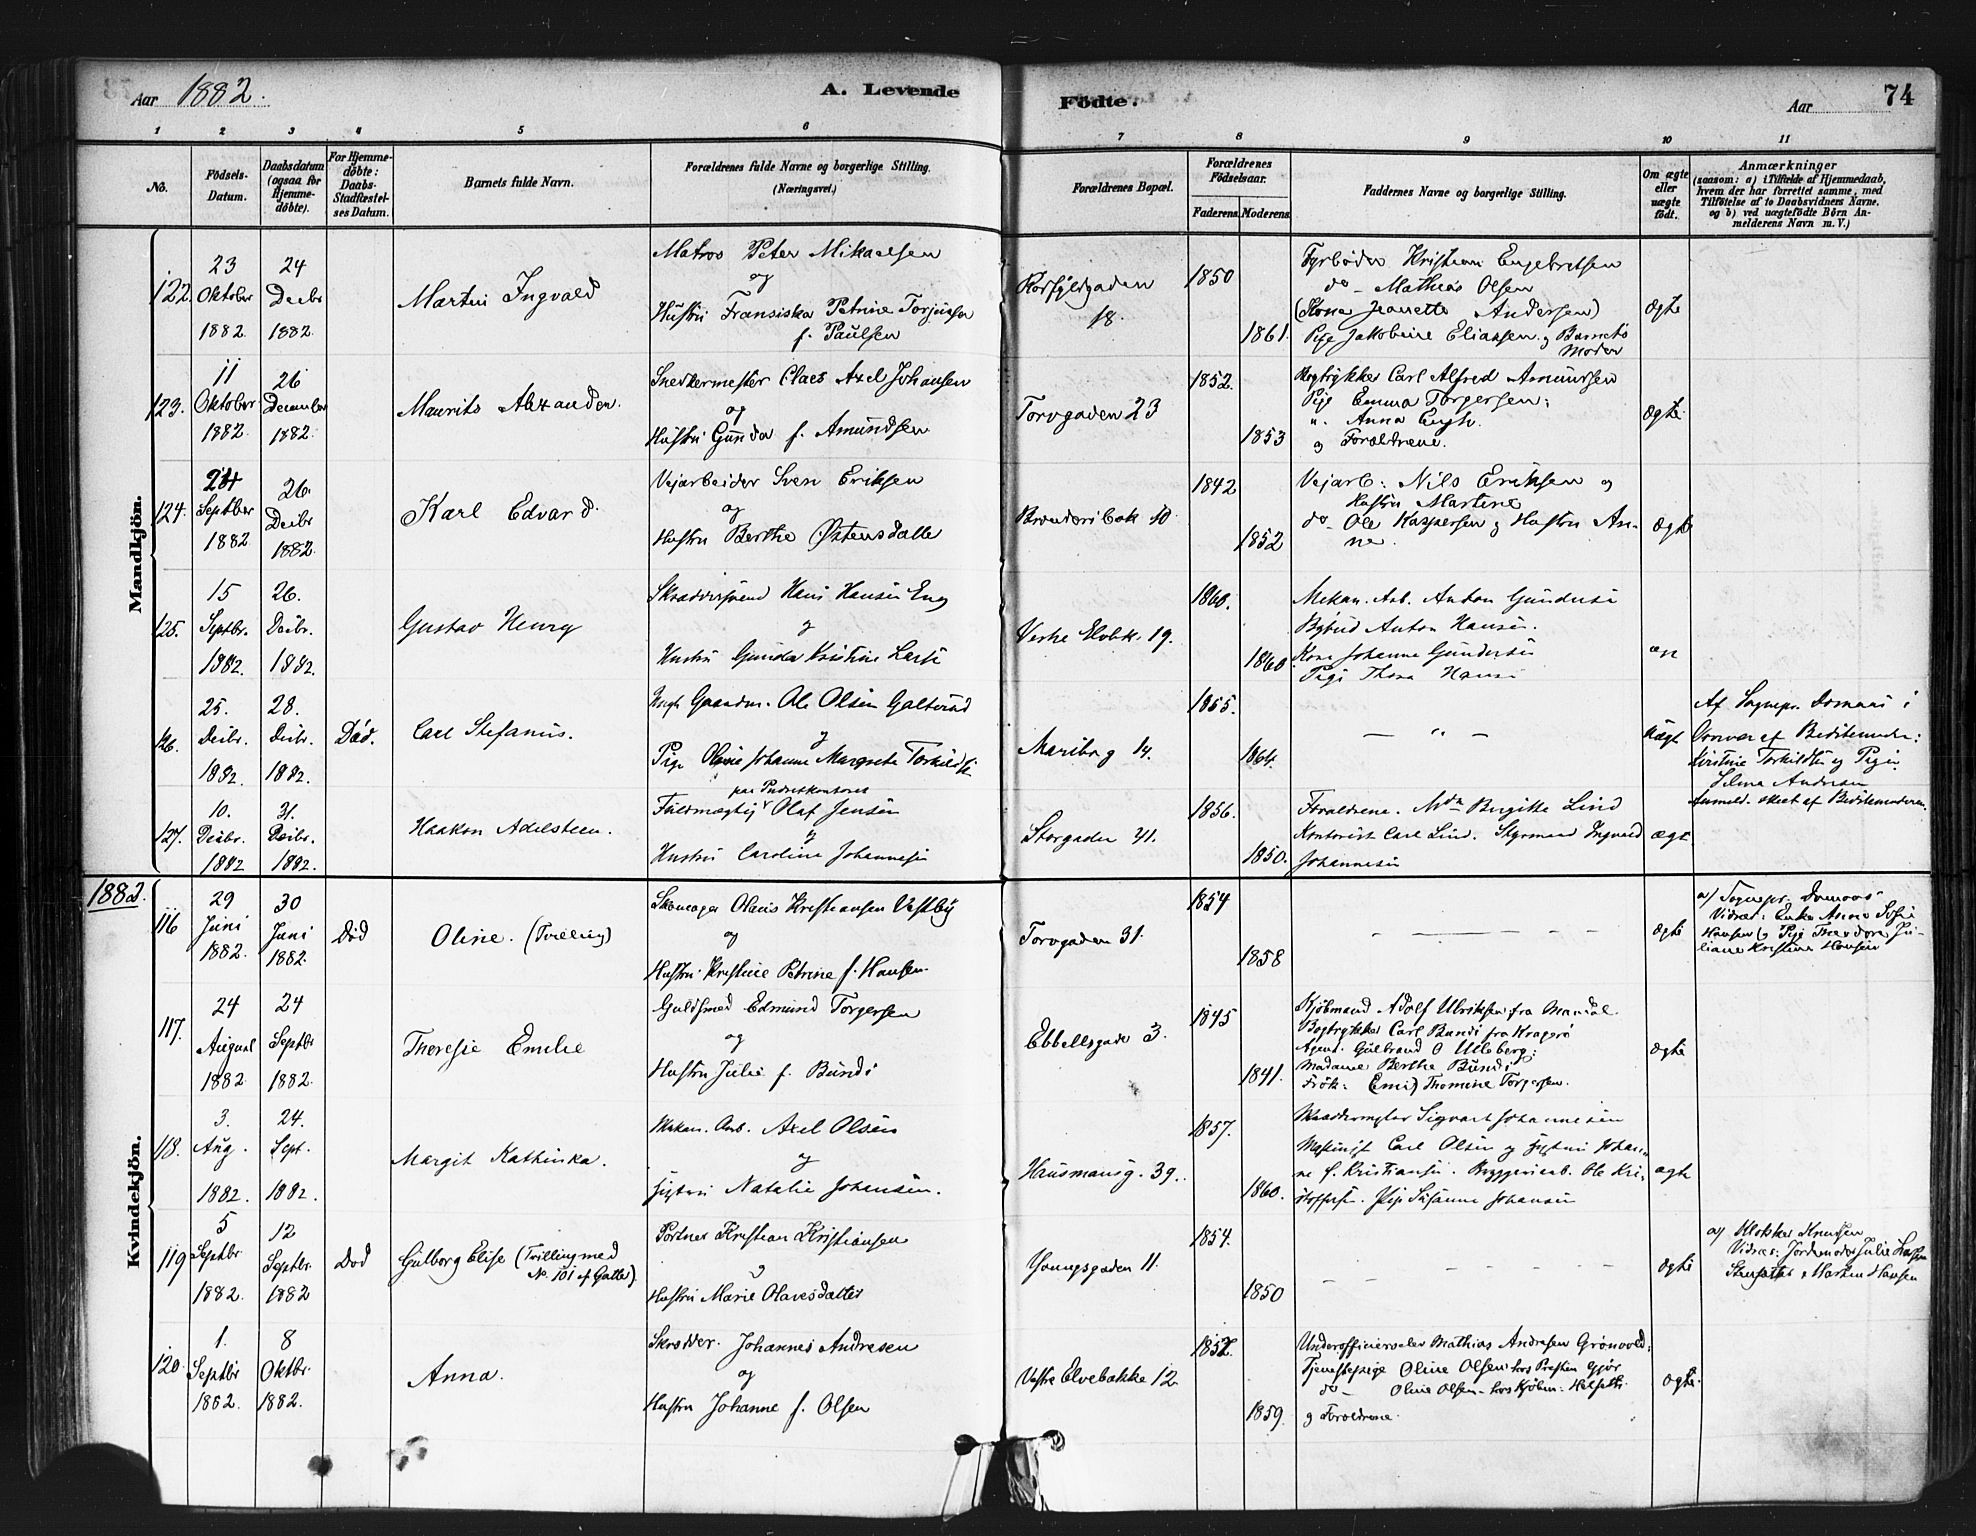 Aar 1882.
A. Levende
Födte.
Aar
74
1 2 3 4 5 6 7 8 9 10 11
No.
Födsels-Datum.
Daabsdatum (ogsaa for Hjemme-döbte).
For Hjemme-döbte: Daabs-Stadfæstel-ses Datum.
Barnets fulde Navn.
Forældrenes fulde Navne og borgerlige Stilling.
(Næringsvei.)
Forældrenes Bopæl.
Forældrenes Födselsaar.
Faderens. Moderens.
Faddernes Navne og borgerlige Stilling.
Om ægte eller uægte födt.
Anmærkninger
(saasom: a) i Tilfælde af Hjemmedaab,
hvem der har forrettet samme, med
Tilföielse af to Daabsvidners Navne,
og b) ved uægtefödte Börn An-
melderens Navn m. V.)
Mandkjön.
122. 23 Oktober 1882 24 Decbr 1882.
Martin Ingvald
Matros Peter Mikaelsen
og
Hustru Fransiska Petrine
f. Paulsen
18.
1850
1861.
Fyrböder Kristian Engebretsen
do - Mathias Olsen
(Kona Jeanette Andersen)
Pige Jakobine Eliassen og Barnets
Moder
ægte
123. 11 Oktober 1882. 26 December 1882.
Maurits Alexander.
Snedkermester Claes Axel Johansen
og
Hustru Gunda f. Amundsen
Torvgaden 23
1852.
1853
Bogtrykker Carl Alfred Amundsen
Pige Emma Torgersen:
" Anna Engh.
og Forældrene.
ægte.
124. 24 Septber 1882 26. Decbr 1882.
Karl Edvard.
Veiarbeider Sven Eriksen
og
Hustru Berthe Østensdatter
10
1842
1852
Veiarb: Nils Eriksen og
Hustru Martine
do - Ole Kaspersen og Hustru An-
ne.
ægte
125. 15 Septbr. 1882. 26. Decbr. 1882.
Gustav Henry
Skræddersvend Hans Hansen Eng
og
Hustru Gunda Kristine
Vestre Elvbk. 19.
1860.
1860
Mekan. Arb. Anton Gundersen
Bybud Anton Hansen.
Kone Johanne Gundersen
Pige Thora Hansen
126. 25. Decbr. 1882. 28. Decbr. 1882.
Död.
Carl Stefanus.
Ole Olsen
og
Pige Oline Johanne Margrete
Maribog 14.
1855.
1864.
— " —
uægt
Af Sognepr.
127. 10. Decbr. 1882 31. Decbr. 1882.
Haakon Adelsteen.
Fuldmægtig Olaf Jensen
og
Hustru Caroline Johannesen
Storgaden 41.
1856.
1850.
Forældrene. Birgitte Lind
Kontorist Carl Lind. Styrmand Ingvard
Johannesen
ægte
1882.
Kvindekjön.
116 29 Juni 1882. 30 Juni 1882.
Död
Oline. (Tvilling)
Skomager Olaus Kristiansen Vestby
og
Hustru Kristine Petrine f. Hansen.
Torvgaden 31.
1854
1858
ægte
a) Sognepr.
Vidner: Enke Anne Sofie
Hansen og Pige Theodora Ju-
liane Kristine Hansen
117. 24 August 1882. 24 Septbr 1882.
Theresie Emilie
Guldsmed Edmund Torgersen
og
Hustru Julie f. Bundi
Ebbellsgade 3.
1845
1841.
Kjöbmand Adolf Ulriksen fra Mandal.
Bogtrykker Carl Bundi fra Kragerö
Agent. Gulbrand O Ulleberg:
Madame Berthe Bundi
Frök: Thomine Torgersen.
ægte
118. 3. Aug. 1882. 24. Sept. 1882.
Margit Kathinka.
Mekan. Arb. Axel Olsen
og
Hustru Natalie Johansen.
Hausmansg. 39.
1857.
1860.
Sigvart Johannesen
Maskinist Carl Olsen og Hustru Johan-
ne f. Kristiansen. Bryggeriarb. Ole Kri-
stoffersen. Pige Susanne Johansen
ægte
119 5 Septbr 1882. 12 Septbr 1882
Död
Gulborg Elise (Tvilling med
No. 101 af Gutter).
Portner Kristian Kristiansen
og
Hustru Marie Olavesdatter
Youngsgaden 11.
1854.
1850
ægte
a) Klokker Knudsen
Vidner: Jordemoder Julie
Marten Hansen
120. 1. Septbr 1882. 8 Oktbr. 1882.
Anna.
Skrædder. Johannes Andresen
og
Hustru Johanne f. Olsen
Vestre Elvebakke 12
1852.
1859.
Underofficierselev Mathias Andresen Grönvold:
Tjenestepige Oline Olsen hos Presten Gjör
do - Oline Olsen - hos Kjöbm: Helseth.
og Forældrene.
ægte.